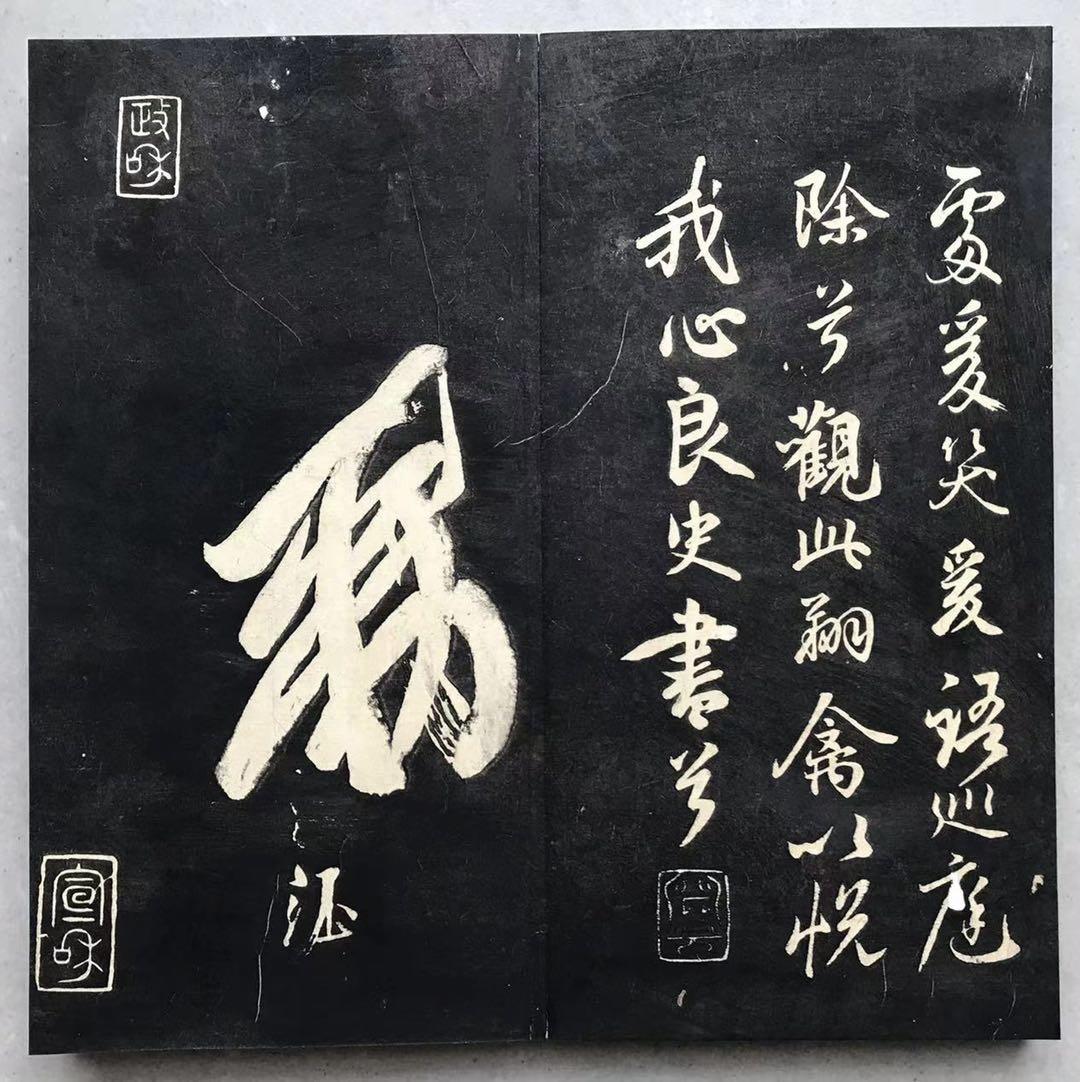 處爰笑爰語巡庭
除兮觀此翔禽以悅
我心良史書兮
勅
政和
宣和